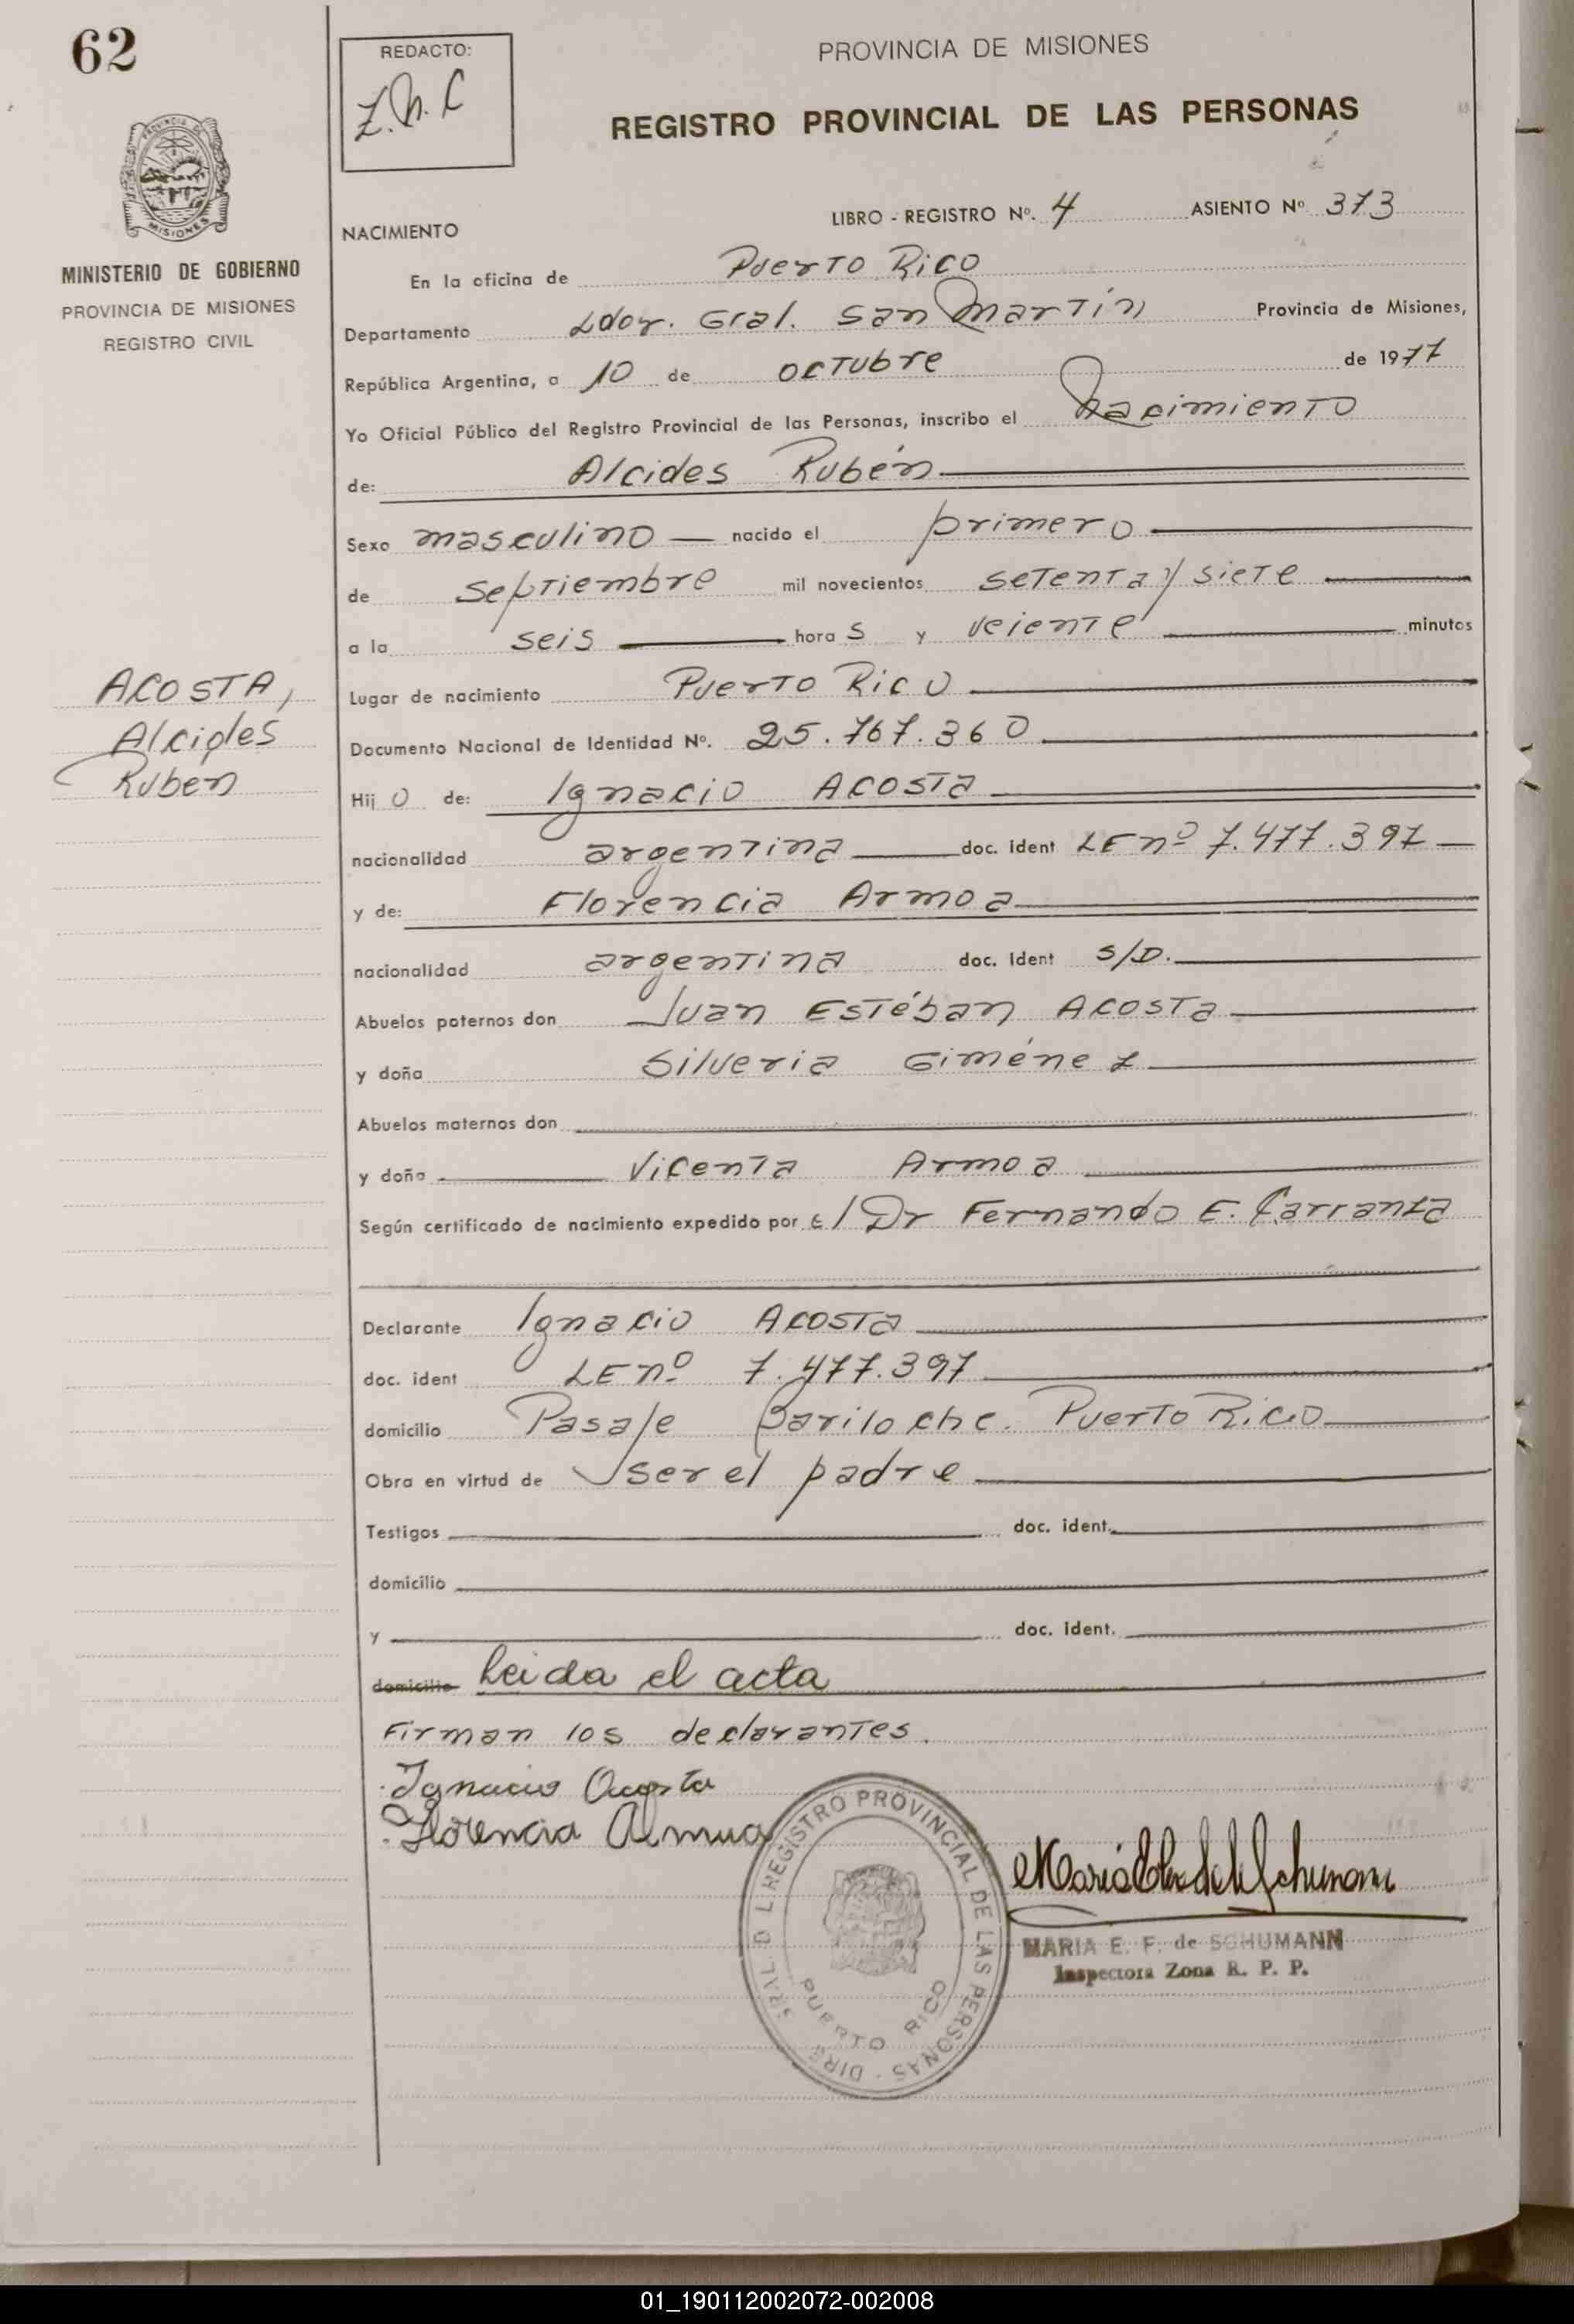 62
REDACTO:
Z.N.C
PROVINCIA DE MISIONES
REGISTRO PROVINCIAL DE LAS PERSONAS
MISIONES
MINISTERIO DE GOBIERNO
PROVINCIA DE MISIONES
REGISTRO CIVIL
LIBRO - REGISTRO Nº. 4 ASIENTO Nº 373
NACIMIENTO
En la oficina de Puerto Rico
Departamento Ldor. Gral. San Martín Provincia de Misiones,
República Argentina, a 10 de octubre de 1977
Yo Oficial Público del Registro Provincial de las Personas, inscribo el nacimiento
de: Alcides Rubén
Sexo masculino nacido el primero
de septiembre mil novecientos setenta y siete
a la seis hora s y veiente minutos
ACOSTA,
Alcides
Ruben
Lugar de nacimiento Puerto Rico
Documento Nacional de Identidad Nº. 25.767.360
Hij o de: Ignacio ACOSTA
nacionalidad argentina doc. ident LE nº 7.477.397
y de: Florencia Armoa
nacionalidad argentina doc. ident S/D.
Abuelos paternos don Juan Estéban ACOSTA
y doña Silveria Giménez
Abuelos maternos don
y doña Vicenta Armoa
Según certificado de nacimiento expedido por el Dr Fernando E. Carranza
Declarante Ignacio ACOSTA
doc. ident LE nº 7.477.397
domicilio Pasaje Bariloche. Puerto Rico
Obra en virtud de ser el padre
Testigos doc. ident.
domicilio
y doc. ident.
domicilio Leida el acta
Firman los declarantes.
Ignacio Acosta
Florencia Almua
REGISTRO PROVINCIAL DE LAS PERSONAS
PUERTO RICO
MARIA E. F. de SCHUMANN
Inspectora Zona R. P. P.
01_190112002072-002008